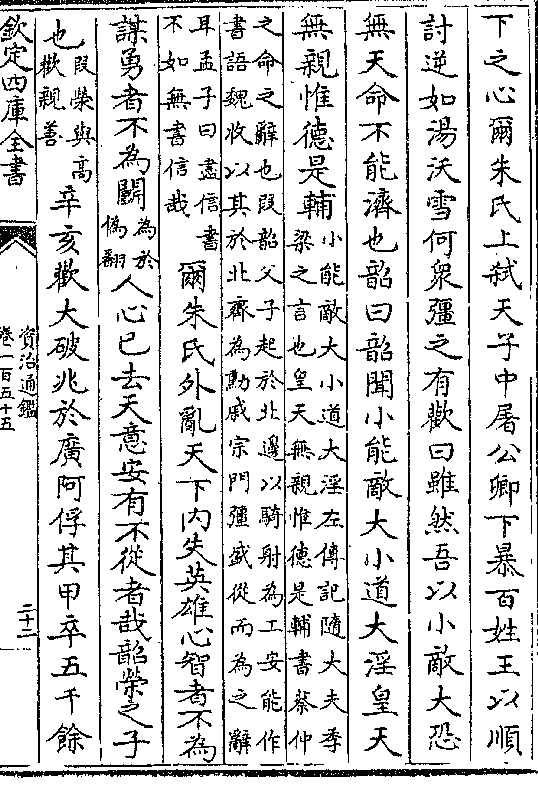 下之心爾朱氏上弑天子中屠公卿下暴百姓王以順
討逆如湯沃雪何衆彊之有歡曰雖然吾以小敵大恐
無天命不能濟也韶曰韶聞小能敵大小道大淫皇天
無親惟德是輔
小能敵大小道大淫左傳記隨大夫季
梁之言也皇天無親惟德是輔書蔡仲
之命之辭也段韶父子起於北邊以騎射為工安能作
書語魏收以其於北齊為勳戚宗門彊盛從而為之辭
耳孟子曰盡信書
不如無書信哉
爾朱氏外亂天下内失英雄心智者不為
謀勇者不為鬭
為於
偽翻
人心已去天意安有不從者哉韶榮之子
也
段榮與高
歡親善
辛亥歡大破兆於廣阿俘其甲卒五千餘
欽定四庫全書
資治通鑑
卷一百五十五
二十二